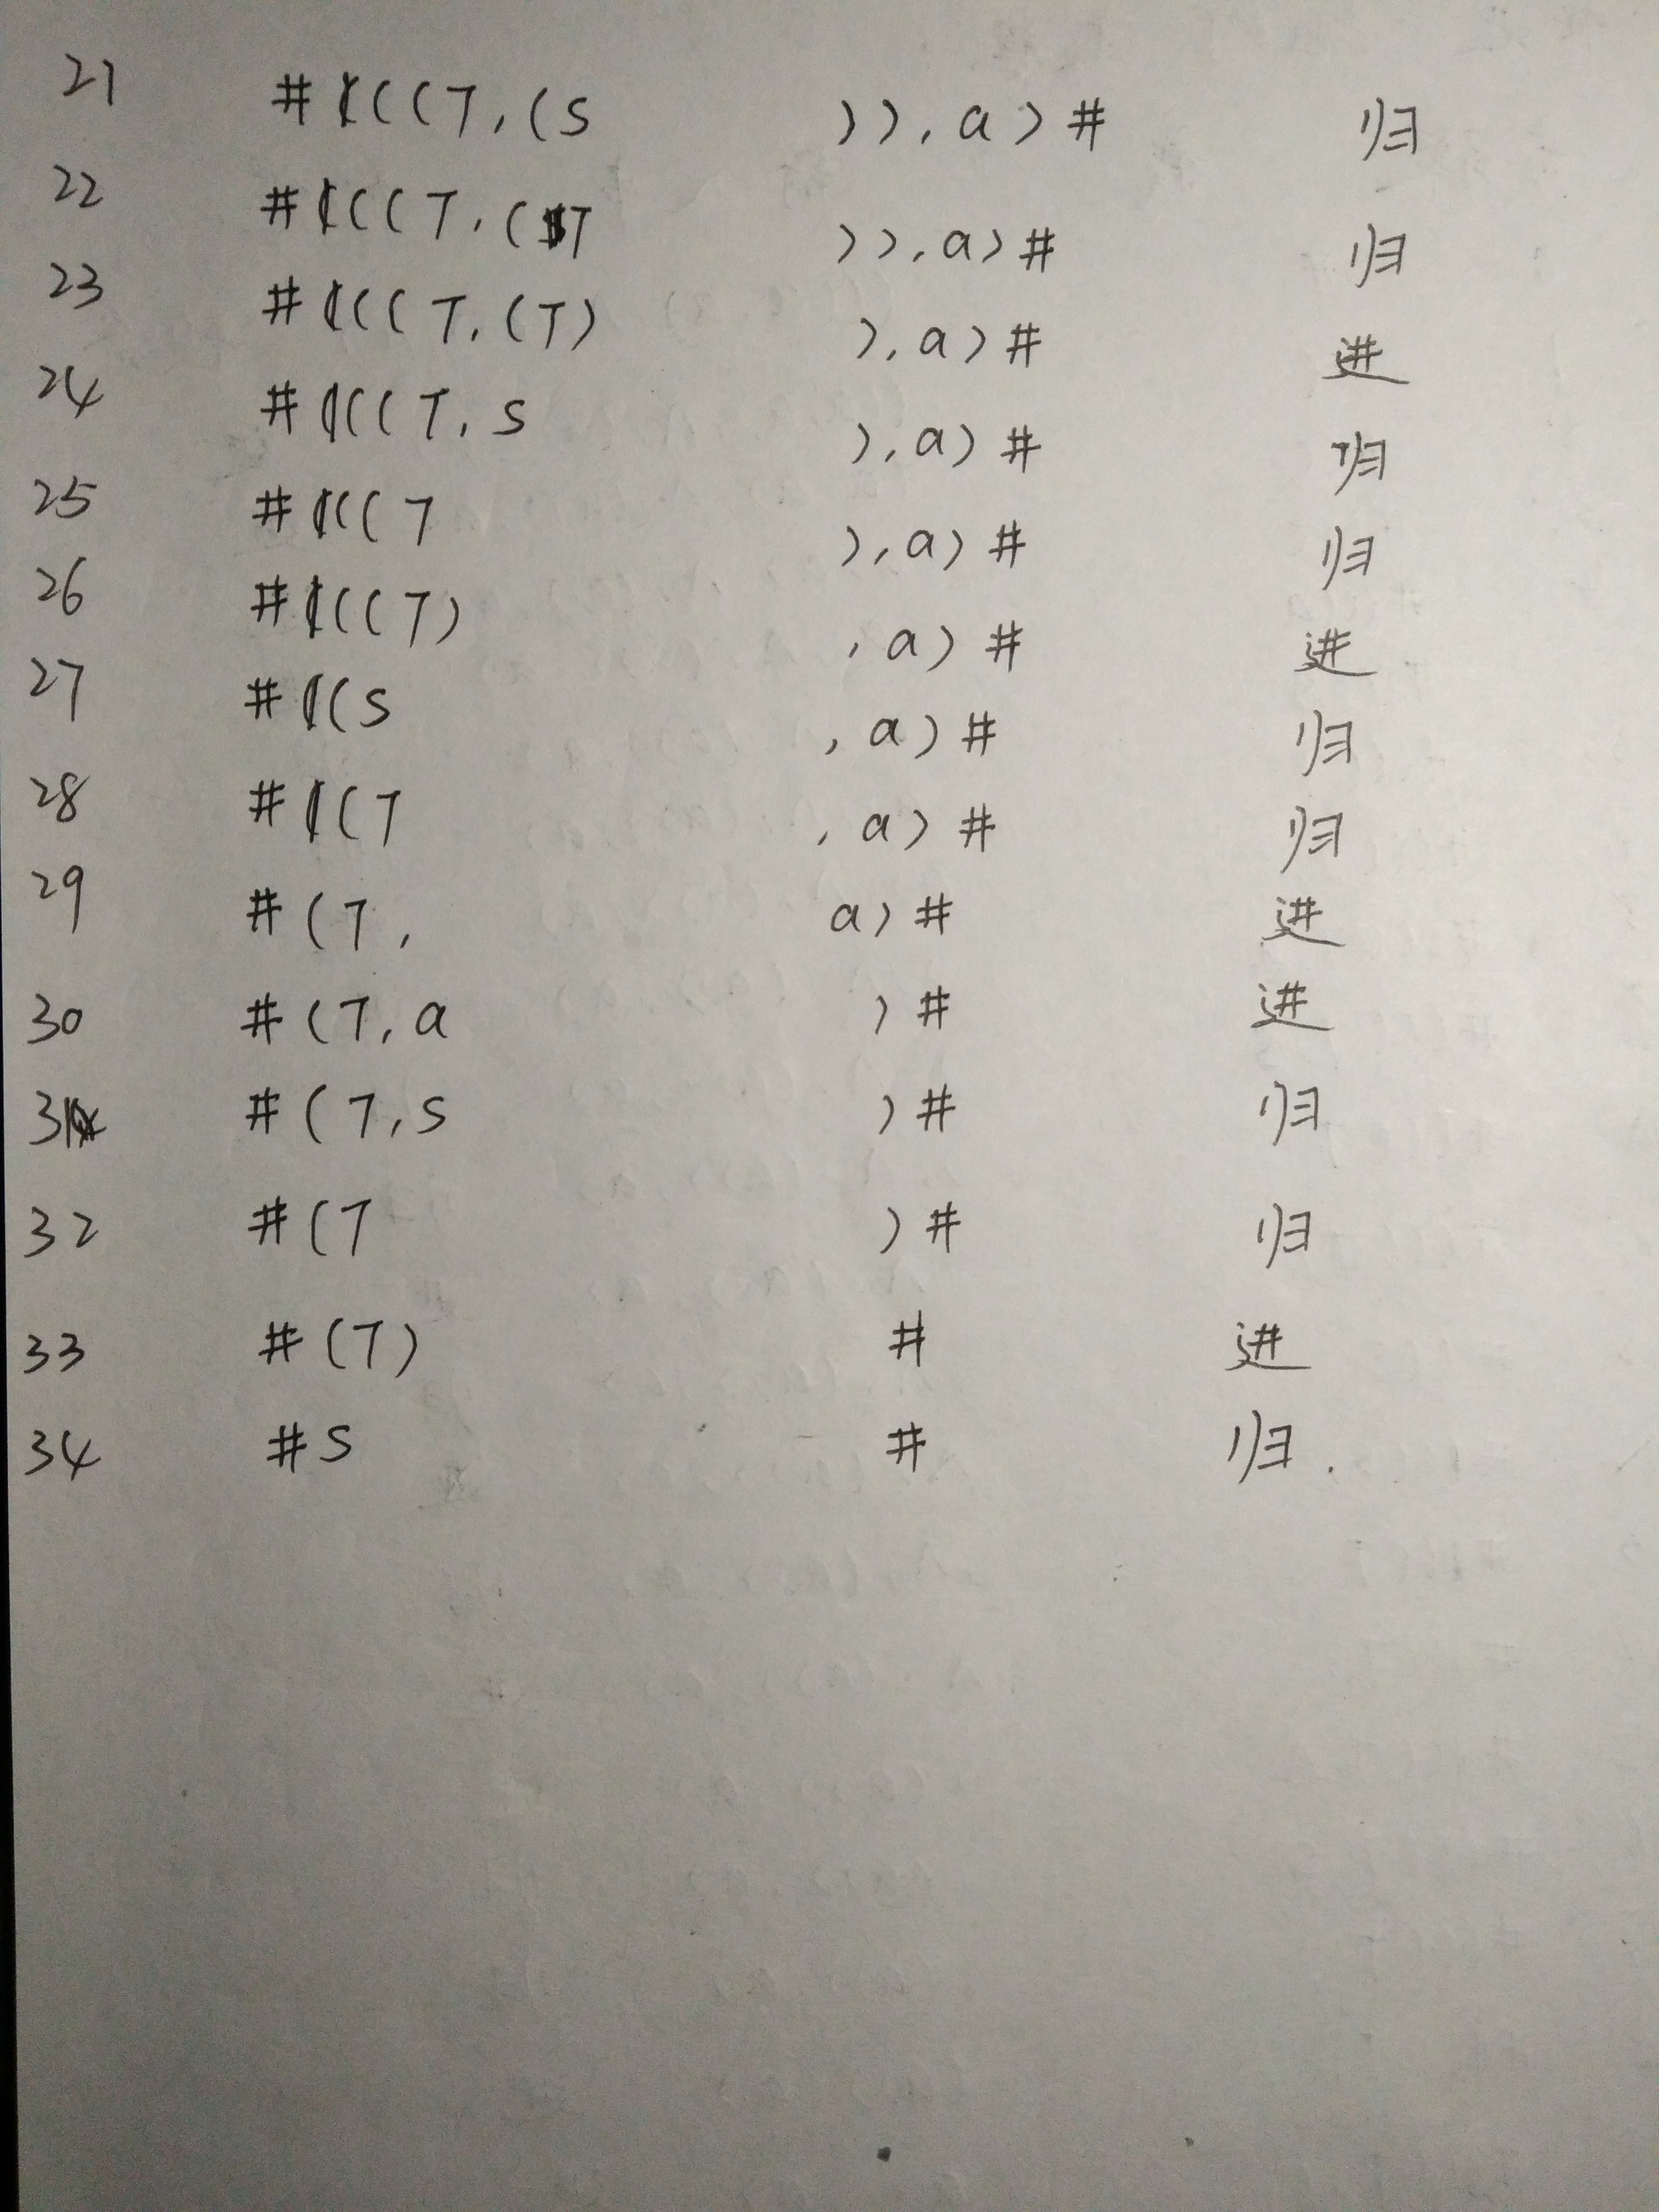 21 #((T,(S )),a)# 归
22 #((T,(T )),a)# 归
23 #((T,(T) ),a)# 进
24 #((T,S ),a)# 归
25 #((T ),a)# 归
26 #((T) ,a)# 进
27 #(S ,a)# 归
28 #(T ,a)# 归
29 #(T, a)# 进
30 #(T,a )# 进
31 #(T,S )# 归
32 #(T )# 归
33 #(T) # 进
34 #S # 归.